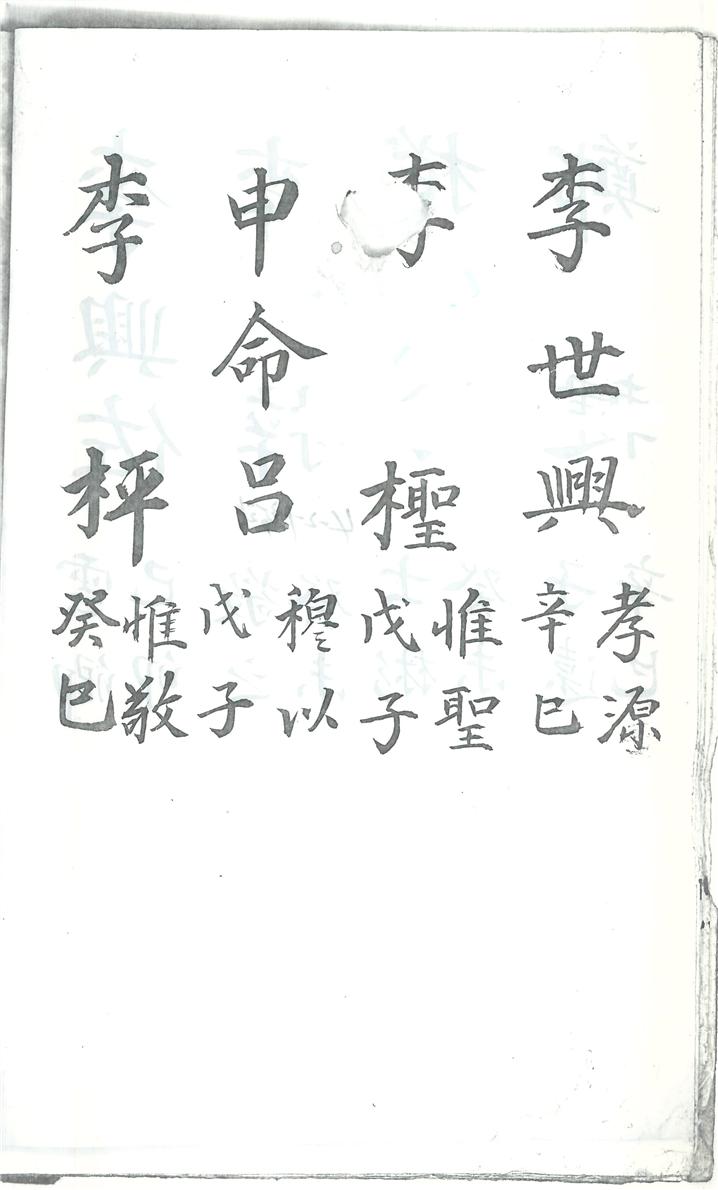 李世興
孝源
辛巳
李檉
惟聖
戊子
申命呂
穆以
戊子
李枰
惟敬
癸巳